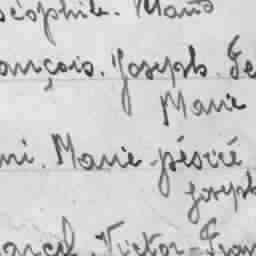 éophile. Mans
ançois. Joseph. Fe
Marie
ni. Marie-Désiré
Joseph
arcel. Victor-Fran